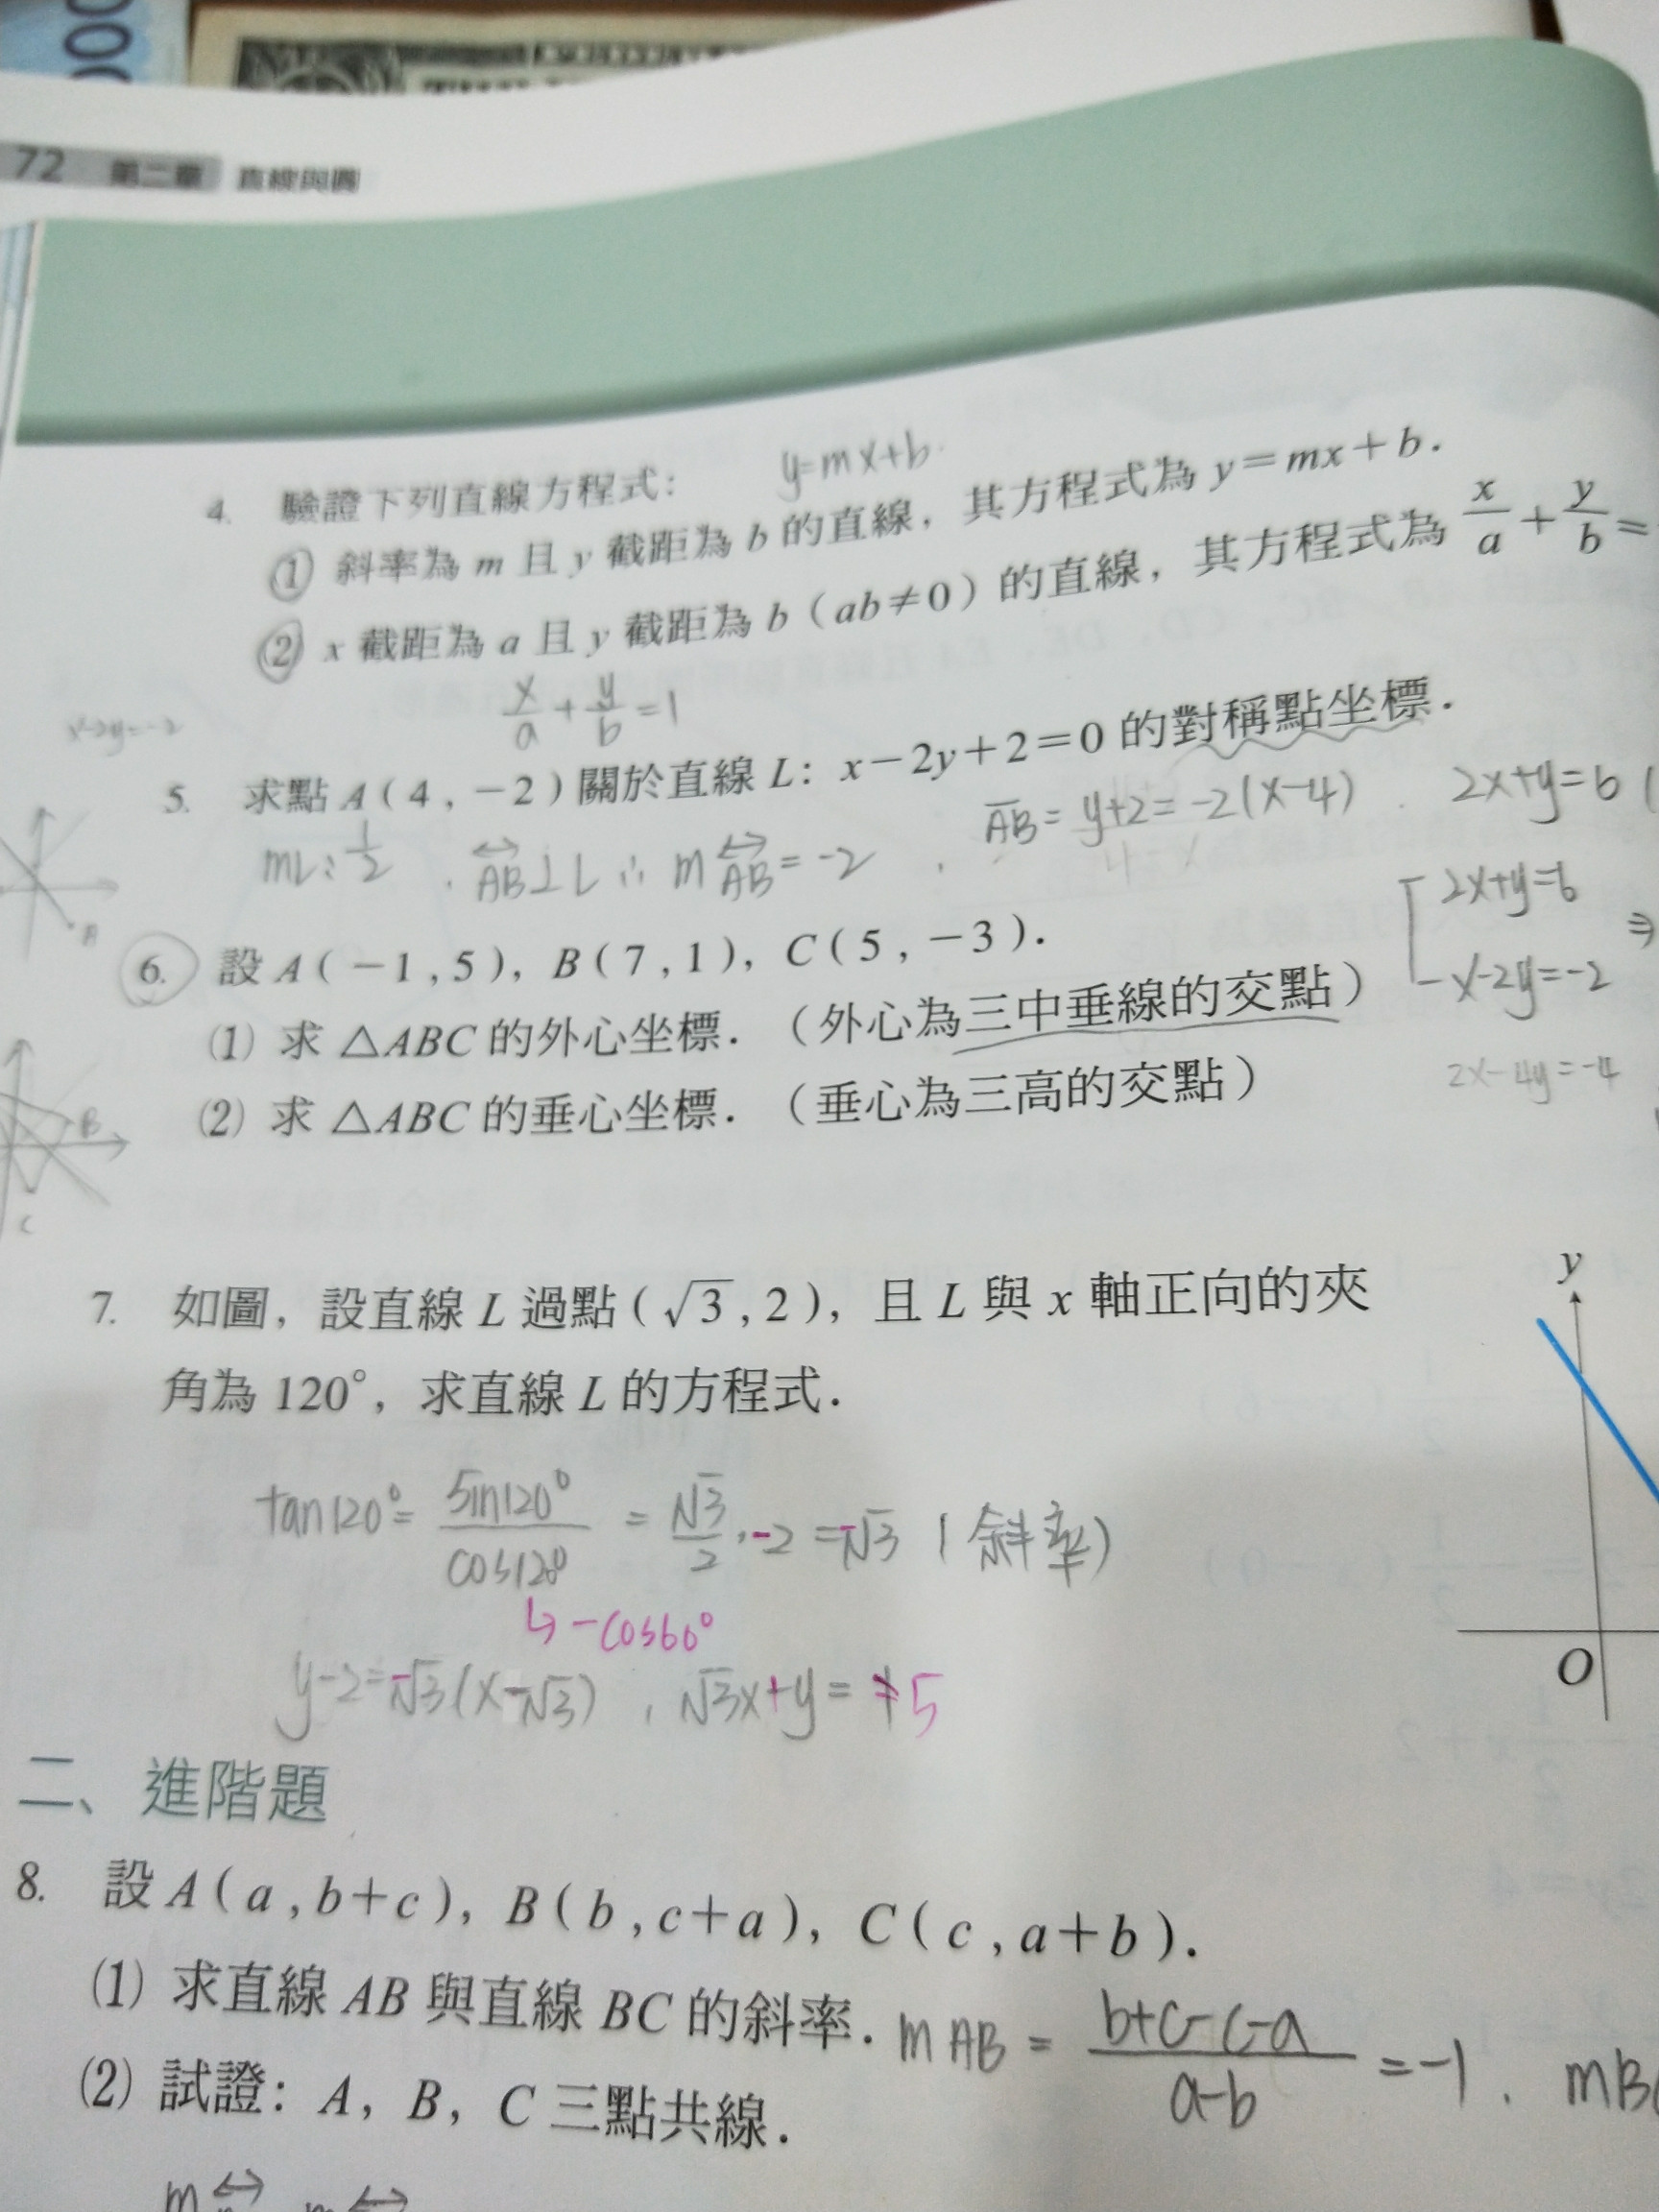 00
72 第二章 直線與圓
4. 驗證下列直線方程式: y=mx+b
① 斜率為 m 且 y 截距為 b 的直線, 其方程式為 y=mx+b.
② x 截距為 a 且 y 截距為 b (ab≠0) 的直線, 其方程式為 x/a + y/b =
x/a + y/b = 1
x-2y=-2
5. 求點 A(4, -2) 關於直線 L: x-2y+2=0 的對稱點坐標.
mL: 1/2 . AB⊥L ∴ m AB = -2 , AB = y+2 = -2(x-4) . 2x+y=6 (
A
2x+y=6
- x-2y=-2 ⇒
2x-4y=-4
6. 設 A(-1,5), B(7,1), C(5,-3).
(1) 求 △ABC 的外心坐標. (外心為三中垂線的交點)
(2) 求 △ABC 的垂心坐標. (垂心為三高的交點)
B
C
7. 如圖, 設直線 L 過點 (√3,2), 且 L 與 x 軸正向的夾
角為 120°, 求直線 L 的方程式.
y
O
tan120° = sin120°/cos120° = √3/2 · -2 = -√3 (斜率)
↳ -cos60°
y-2 = -√3(x-√3) , √3x+y = 5
二、進階題
8. 設 A(a,b+c), B(b,c+a), C(c,a+b).
(1) 求直線 AB 與直線 BC 的斜率. mAB = b+c-c-a / a-b = -1 . mBC
(2) 試證: A, B, C 三點共線.
m